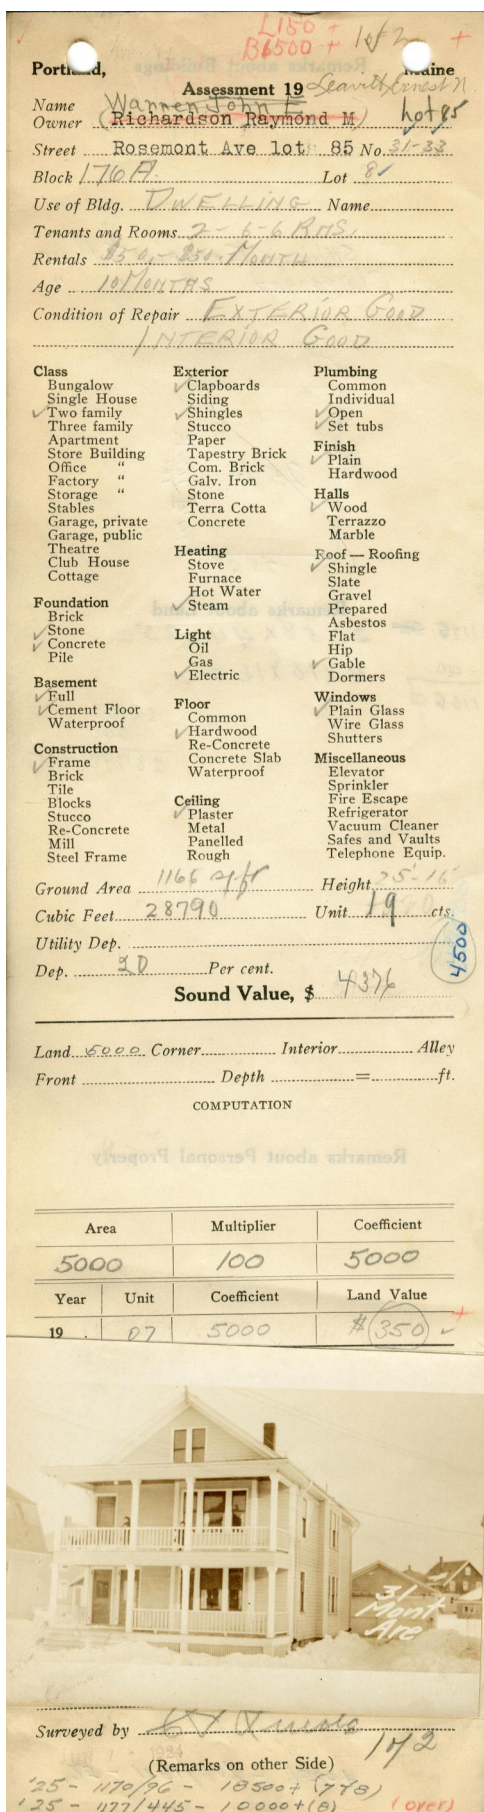 L150 +
B6500 + 1 of 2 +
Portland, Maine
Assessment 19 Leavitt, Ernest N
Name Warren John E
Owner (Richardson Raymond M) Lot 85
Street Rosemont Ave lot 85 No. 31-33
Block 176A. Lot 8
Use of Bldg. DWELLING Name
Tenants and Rooms 2-6-6 RMS.
Rentals $50.- $50. MONTH
Age 10 MONTHS
Condition of Repair EXTERIOR GOOD
INTERIOR GOOD
Class
Bungalow
Single House
✓Two family
Three family
Apartment
Store Building
Office "
Factory "
Storage "
Stables
Garage, private
Garage, public
Theatre
Club House
Cottage
Foundation
Brick
✓Stone
✓Concrete
Pile
Basement
✓Full
✓Cement Floor
Waterproof
Construction
✓Frame
Brick
Tile
Blocks
Stucco
Re-Concrete
Mill
Steel Frame
Exterior
✓Clapboards
Siding
✓Shingles
Stucco
Paper
Tapestry Brick
Com. Brick
Galv. Iron
Stone
Terra Cotta
Concrete
Heating
Stove
Furnace
Hot Water
✓Steam
Light
Oil
Gas
✓Electric
Floor
Common
✓Hardwood
Re-Concrete
Concrete Slab
Waterproof
Ceiling
✓Plaster
Metal
Panelled
Rough
Plumbing
Common
Individual
✓Open
✓Set tubs
Finish
✓Plain
Hardwood
Halls
✓Wood
Terrazzo
Marble
Roof — Roofing
✓Shingle
Slate
Gravel
Prepared
Asbestos
Flat
Hip
✓Gable
Dormers
Windows
✓Plain Glass
Wire Glass
Shutters
Miscellaneous
Elevator
Sprinkler
Fire Escape
Refrigerator
Vacuum Cleaner
Safes and Vaults
Telephone Equip.
Ground Area 1166 sq. ft Height 25'-16'
Cubic Feet 28790 Unit 19 cts.
Utility Dep.
4500
Dep. 20 Per cent.
Sound Value, $ 4376
Land 5000 Corner Interior Alley
Front Depth = ft.
COMPUTATION
Remarks about Personal Property
Area Multiplier Coefficient
5000 100 5000
Year Unit Coefficient Land Value
19 . 07 5000 $ 350 ✓ +
31
Mont
Ave
Surveyed by
1 of 2
(Remarks on other Side)
'25 - 1170/96 - 18500+ (7+8)
'25 - 1177/445 - 10000+(8) (over)